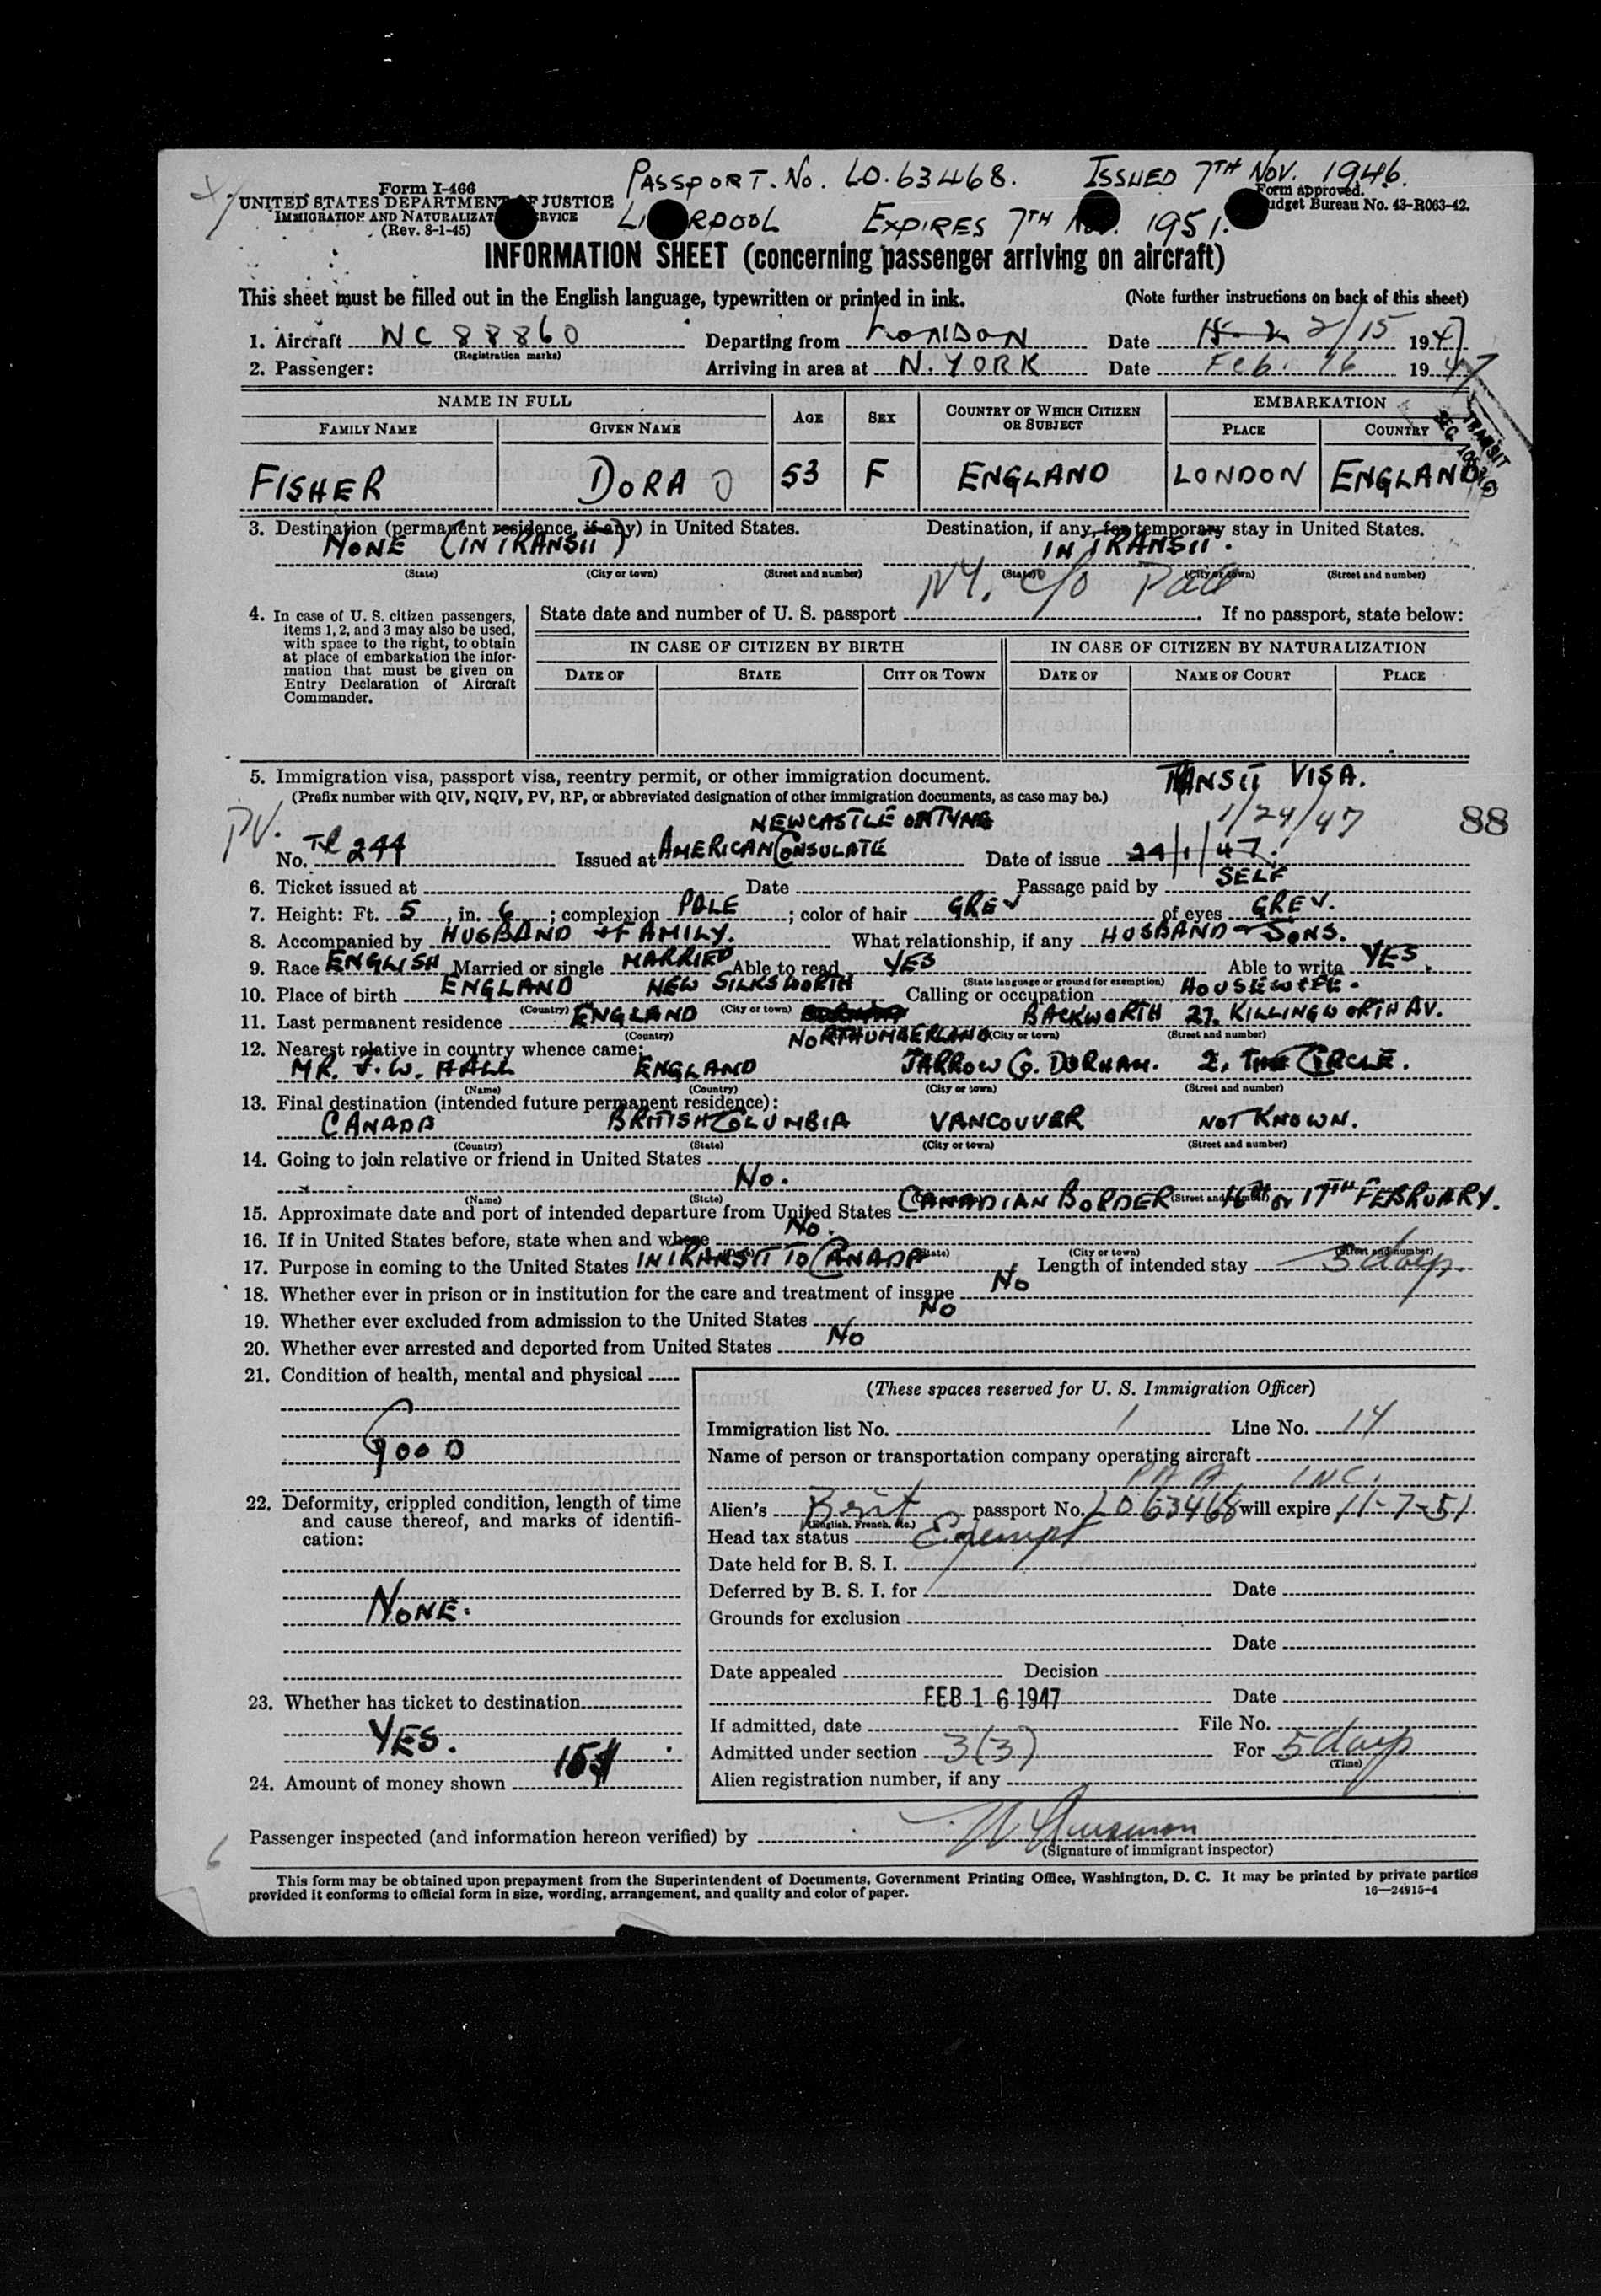 PASSPORT. No. LO.63468. ISSUED 7TH NOV. 1946.
Form I-466
UNITED STATES DEPARTMENT OF JUSTICE
IMMIGRATION AND NATURALIZAT ERVICE
(Rev. 8-1-45)
Form approved.
udget Bureau No. 43-R063-42.
LI RPOOL EXPIRES 7TH 1951.
INFORMATION SHEET (concerning passenger arriving on aircraft)
This sheet must be filled out in the English language, typewritten or printed in ink. (Note further instructions on back of this sheet)
1. Aircraft NC 88860 Departing from LONDON Date 2/15 1947
(Registration marks)
2. Passenger: Arriving in area at N. YORK Date Feb. 16 1947
TRANSIT
SEC.
NAME IN FULL AGE SEX COUNTRY OF WHICH CITIZEN OR SUBJECT EMBARKATION
FAMILY NAME GIVEN NAME PLACE COUNTRY
FISHER DORA 53 F ENGLAND LONDON ENGLAND
3. Destination (permanent residence, if any) in United States. Destination, if any, for temporary stay in United States.
NONE (IN TRANSIT) IN TRANSIT.
(State) (City or town) (Street and number) (State) (City or town) (Street and number)
NY. c/o Paa
4. In case of U. S. citizen passengers, items 1, 2, and 3 may also be used, with space to the right, to obtain at place of embarkation the information that must be given on Entry Declaration of Aircraft Commander.
State date and number of U. S. passport If no passport, state below:
IN CASE OF CITIZEN BY BIRTH IN CASE OF CITIZEN BY NATURALIZATION
DATE OF STATE CITY OR TOWN DATE OF NAME OF COURT PLACE
5. Immigration visa, passport visa, reentry permit, or other immigration document. TRANSIT VISA.
(Prefix number with QIV, NQIV, PV, RP, or abbreviated designation of other immigration documents, as case may be.)
PV. NEWCASTLE ON TYNE 1/24/47 88
No. 244 Issued at AMERICAN CONSULATE Date of issue 24/1/47.
6. Ticket issued at Date Passage paid by SELF
7. Height: Ft. 5, in. 6; complexion PALE; color of hair GREY of eyes GREY.
8. Accompanied by HUSBAND + FAMILY. What relationship, if any HUSBAND + SONS.
9. Race ENGLISH Married or single MARRIED Able to read YES Able to write YES.
(State language or ground for exemption)
10. Place of birth ENGLAND NEW SILKSWORTH Calling or occupation HOUSEWIFE.
(Country) (City or town)
11. Last permanent residence ENGLAND NORTHUMBERLAND BACKWORTH 27. KILLINGWORTH AV.
(Country) (City or town) (Street and number)
12. Nearest relative in country whence came:
MR. J. W. HALL ENGLAND JARROW Co. DURHAM. 2, THE CIRCLE.
(Name) (Country) (City or town) (Street and number)
13. Final destination (intended future permanent residence):
CANADA BRITISH COLUMBIA VANCOUVER NOT KNOWN.
(Country) (State) (City or town) (Street and number)
14. Going to join relative or friend in United States
No.
(Name) (State) (Street and number)
15. Approximate date and port of intended departure from United States CANADIAN BORDER 16th or 17TH FEBRUARY.
16. If in United States before, state when and where No.
(State) (City or town) (Street and number)
17. Purpose in coming to the United States IN TRANSIT TO CANADA Length of intended stay 5 days
18. Whether ever in prison or in institution for the care and treatment of insane No
19. Whether ever excluded from admission to the United States No
20. Whether ever arrested and deported from United States No
21. Condition of health, mental and physical
GOOD
22. Deformity, crippled condition, length of time and cause thereof, and marks of identification:
NONE.
23. Whether has ticket to destination
YES.
24. Amount of money shown 15$
(These spaces reserved for U. S. Immigration Officer)
Immigration list No. 1 Line No. 14
Name of person or transportation company operating aircraft
PAA INC.
Alien's Brit passport No. LO 63468 will expire 11-7-51
(English, French, etc.)
Head tax status Exempt
Date held for B. S. I.
Deferred by B. S. I. for Date
Grounds for exclusion
Date
Date appealed Decision
FEB 16 1947 Date
If admitted, date File No.
Admitted under section 3(3) For 5 days
(Time)
Alien registration number, if any
Passenger inspected (and information hereon verified) by
(Signature of immigrant inspector)
6
This form may be obtained upon prepayment from the Superintendent of Documents, Government Printing Office, Washington, D. C. It may be printed by private parties
provided it conforms to official form in size, wording, arrangement, and quality and color of paper. 16—24915-4